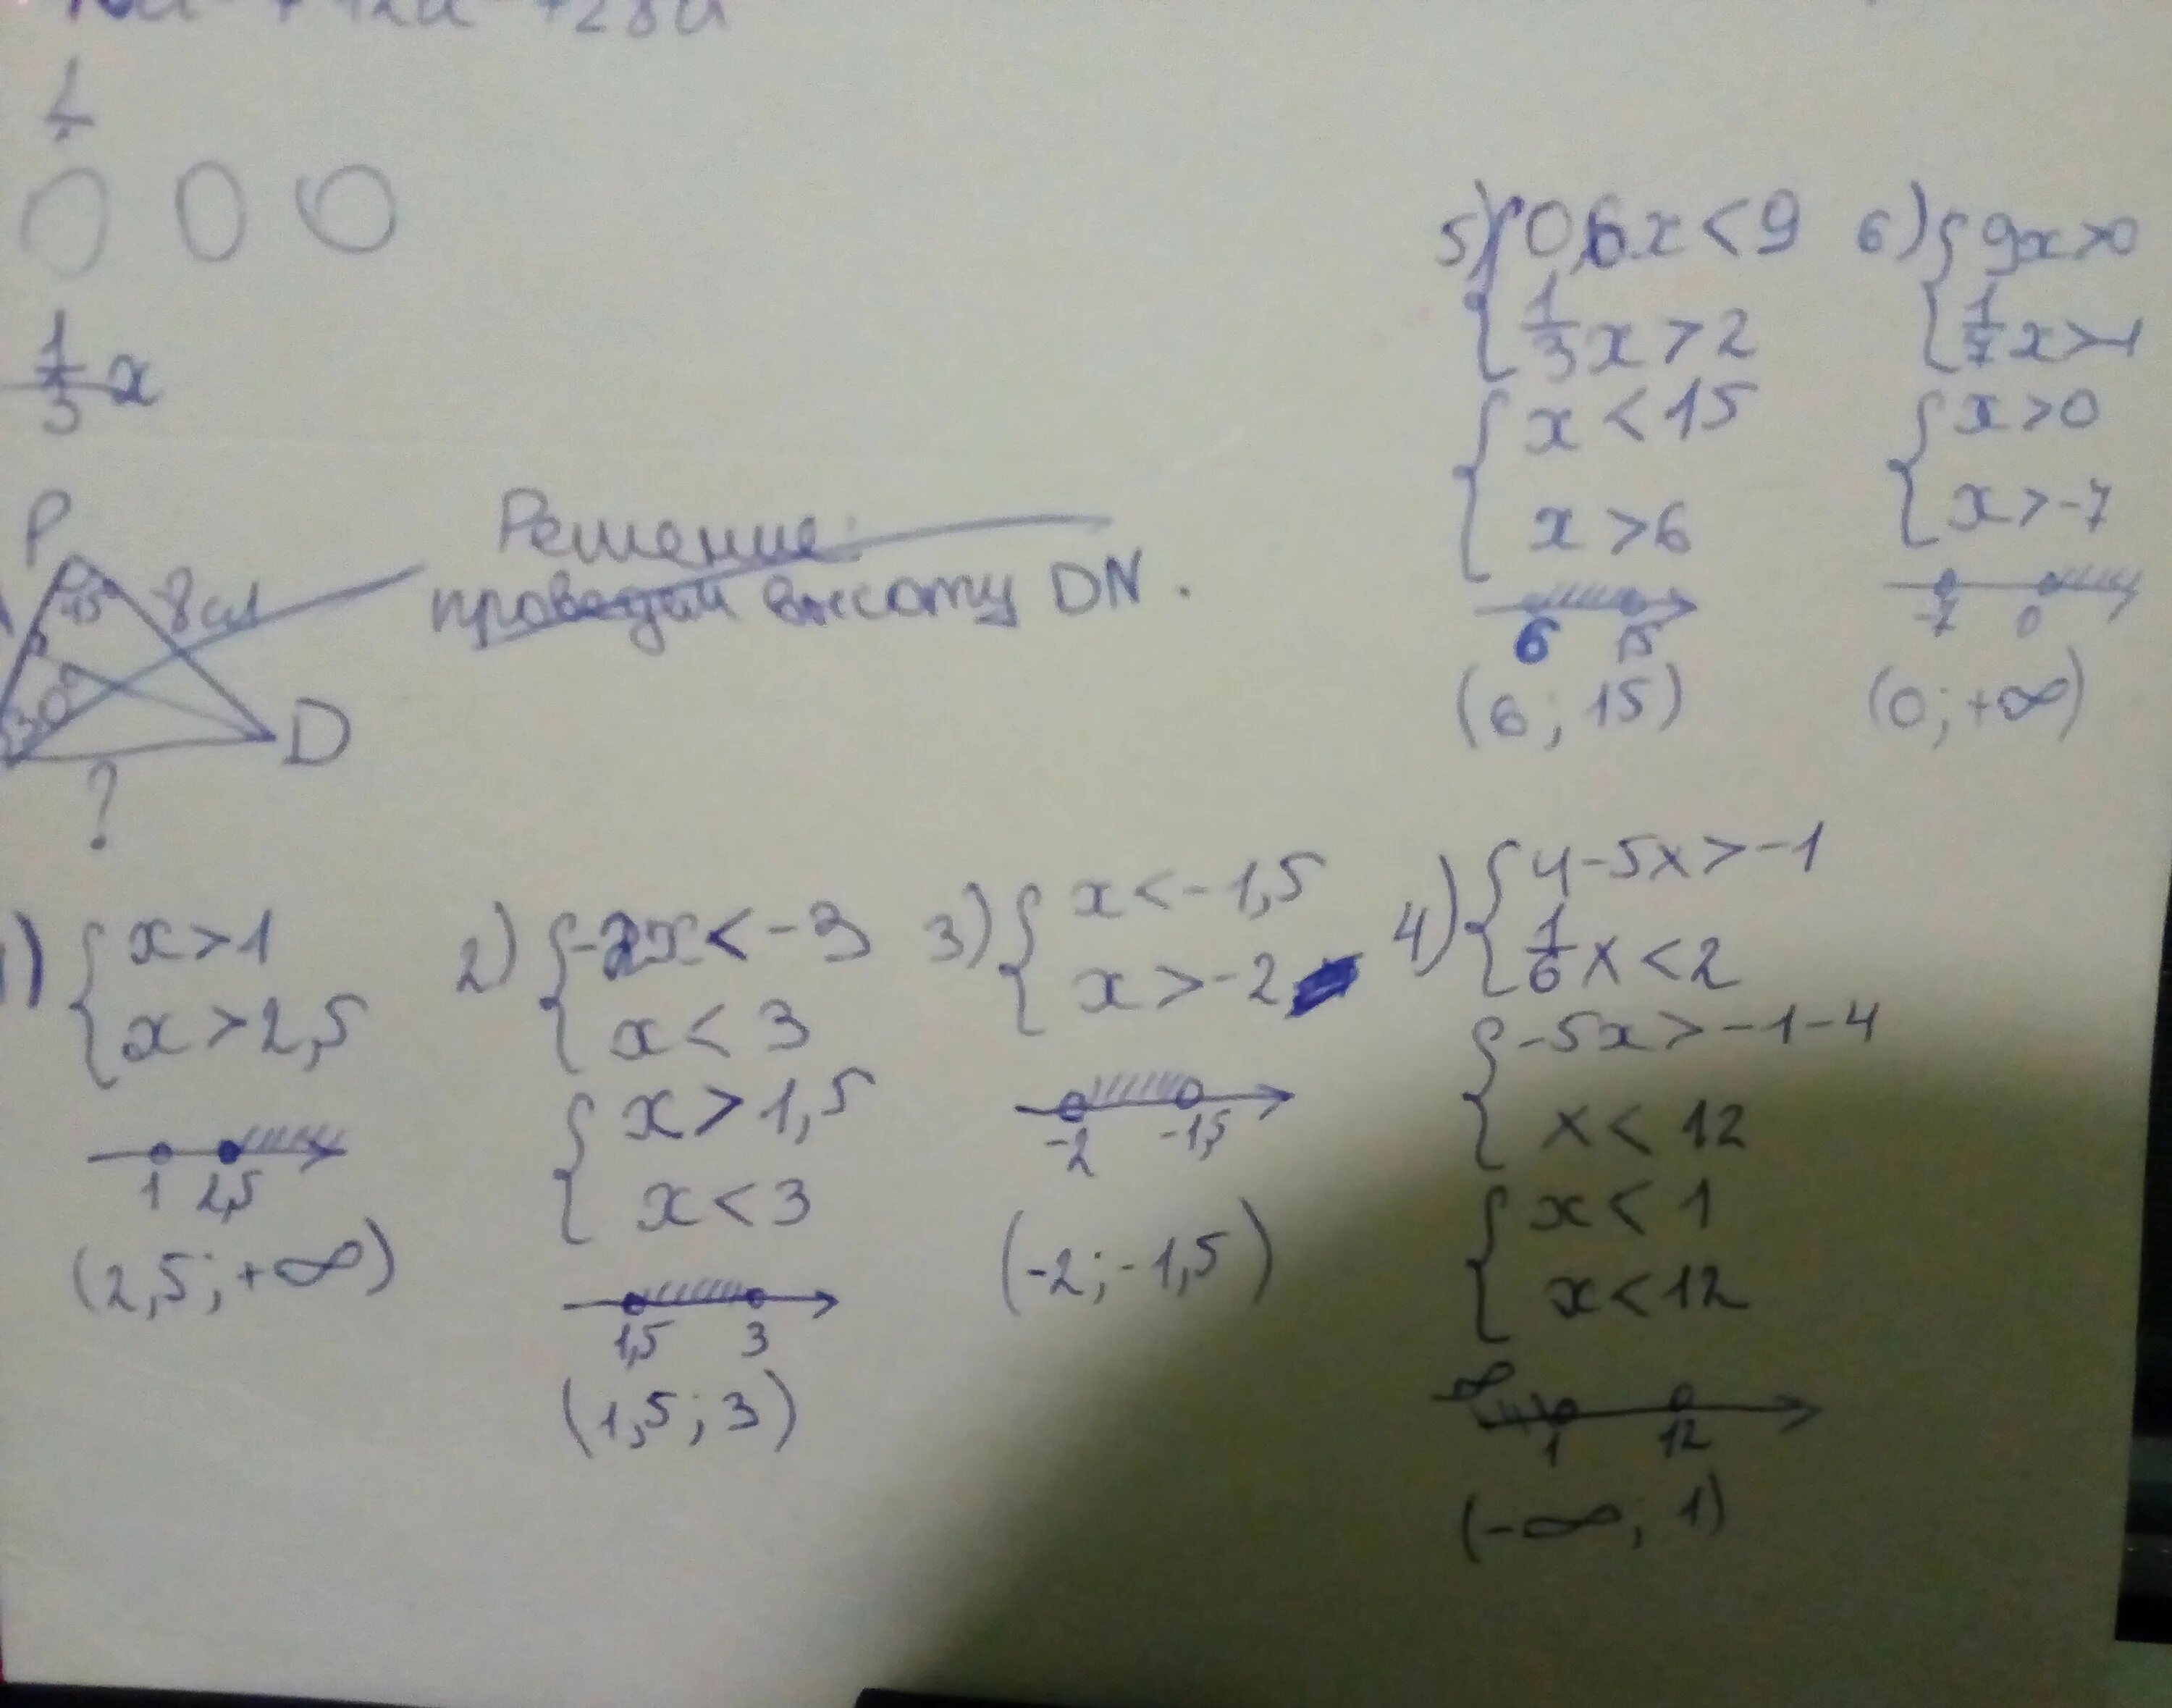 1/3 x
P
45
8см
30°
D
?
Решение:
проведём высоту DN.
5) { 0,6x < 9
1/3 x > 2
{ x < 15
x > 6
6 15
(6; 15)
6) { 9x > 0
1/7 x > -1
{ x > 0
x > -7
-7 0
(0; +∞)
1) { x > 1
x > 2,5
1 2,5
(2,5; +∞)
2) { -2x < -3
x < 3
{ x > 1,5
x < 3
1,5 3
(1,5; 3)
3) { x < -1,5
x > -2
-2 -1,5
(-2; -1,5)
4) { 4-5x > -1
1/6 x < 2
{ -5x > -1-4
x < 12
{ x < 1
x < 12
-∞
1 12
(-∞; 1)